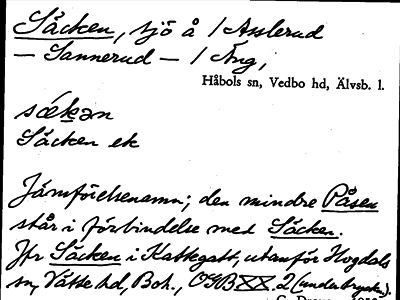 Säcken, sjö å 1 Asslerud
— Sannerud — 1 Äng,
Håbols sn, Vedbo hd, Älvsb. l.
sǽkən
Säcken ek
Jämförelsenamn; den mindre Påsen
står i förbindelse med Säcken.
Jfr Säcken i Kattegatt, utanför Hogdals
sn, Vätte hd, Boh., OGB XX. 2 (under trycken).